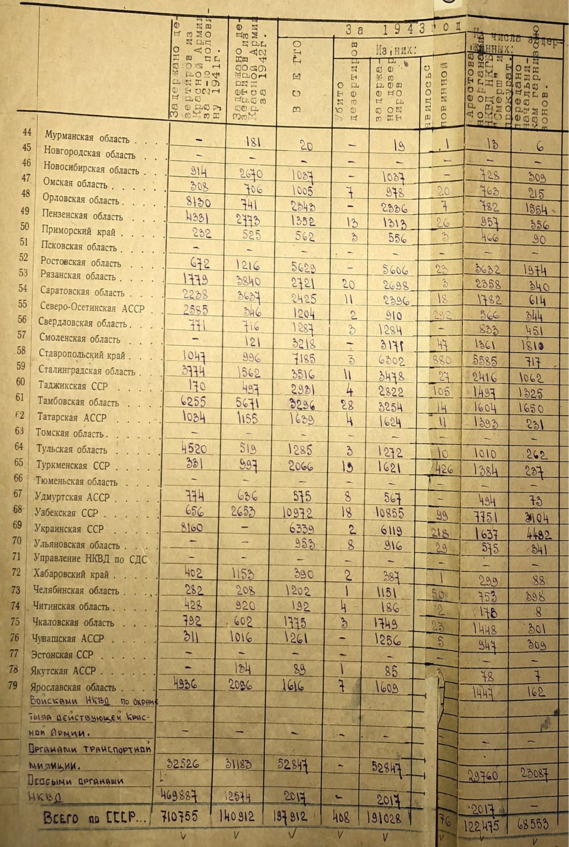 За 1943 год
Задержано дезертиров из Красной Армии за 2-ю половину 1941г.
Задержано дезертиров из Красной Армии за 1942г.
ВСЕГО
Из них:
дезертиров
Из числа задержанных:
44 Мурманская область - 181 20 - 19 1 13 6
45 Новгородская область - - - - - - - -
46 Новосибирская область 914 2670 1037 - 1037 - 728 309
47 Омская область 308 706 1005 7 978 20 763 215
48 Орловская область 8130 741 2343 - 2336 7 782 1554
49 Пензенская область 4331 2773 1352 13 1313 26 957 356
50 Приморский край 232 525 562 3 556 3 466 90
51 Псковская область - - - - - - - -
52 Ростовская область 672 1216 5629 - 5606 23 3632 1974
53 Рязанская область 1779 3840 2721 20 2698 3 2358 340
54 Саратовская область 2238 3637 2425 11 2396 18 1782 614
55 Северо-Осетинская АССР 2585 346 1204 2 910 292 566 344
56 Свердловская область 771 716 1287 3 1284 - 833 451
57 Смоленская область - 121 3218 - 3171 47 1361 1810
58 Ставропольский край 1047 996 7185 3 6302 880 5585 717
59 Сталинградская область 3774 1562 3516 11 3478 27 2416 1062
60 Таджикская ССР 170 497 2931 4 2822 105 1497 1325
61 Тамбовская область 6255 5671 3296 28 3254 14 1604 1650
62 Татарская АССР 1034 1155 1639 4 1624 11 1393 231
63 Томская область - - - - - - - -
64 Тульская область 4520 519 1285 3 1272 10 1010 262
65 Туркменская ССР 331 997 2066 19 1621 426 1384 237
66 Тюменьская область - - - - - - - -
67 Удмуртская АССР 774 636 575 8 567 - 494 73
68 Узбекская ССР 656 2653 10972 18 10855 99 7751 3104
69 Украинская ССР 8160 - 6339 2 6119 218 1637 4482
70 Ульяновская область - - 953 8 916 29 575 341
71 Управление НКВД по СДС - - - - - - - -
72 Хабаровский край 402 1153 390 2 387 1 299 88
73 Челябинская область 282 208 1202 1 1151 50 753 398
74 Читинская область 428 920 192 4 186 2 178 8
75 Чкаловская область 792 602 1775 3 1749 23 1448 301
76 Чувашская АССР 311 1016 1261 - 1256 5 947 309
77 Эстонская ССР - - - - - - - -
78 Якутская АССР - 134 89 1 85 78 7
79 Ярославская область 4936 2096 1616 7 1609 1447 162
Войсками НКВД по охране
тыла действующей Крас-
ной Армии. - - - - - - -
Органами транспортной
милиции. 32526 31183 52847 - 52847 29760 23087
Особыми органами
НКВД 469887 12574 2017 - 2017 2017 -
Всего по СССР... 710755 140912 197912 408 191028 76 122475 68553